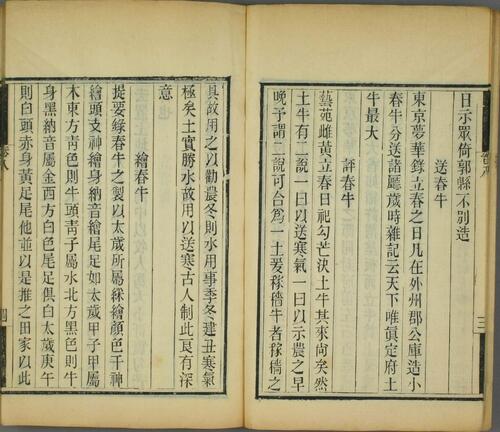 日示眾倚郭縣不別造
送春牛
東京夢華錄立春之日凡在外州郡公庫造小
春牛分送諸廳歲時雜記云天下唯真定府土
牛最大
評春牛
藝苑雌黃立春日祀勾芒決土牛其來尚矣然
土牛有二說一曰以送寒氣一曰以示農之早
晚予謂二說可合為一土爰稼穡牛者稼穡之
三
具故用之以勸農冬則水用事季冬建丑寒氣
極矣土實勝水故用以送寒古人制此良有深
意
繪春牛
提要綵春牛之製以太歲所屬綵繪顏色干神
繪頭支神繪身納音繪尾足如太歲甲子甲屬
木東方青色則牛頭青子屬水北方黑色則牛
身黑納音屬金西方白色尾足俱白太歲庚午
則白頭赤身黃足尾他並以是推之田家以此
四